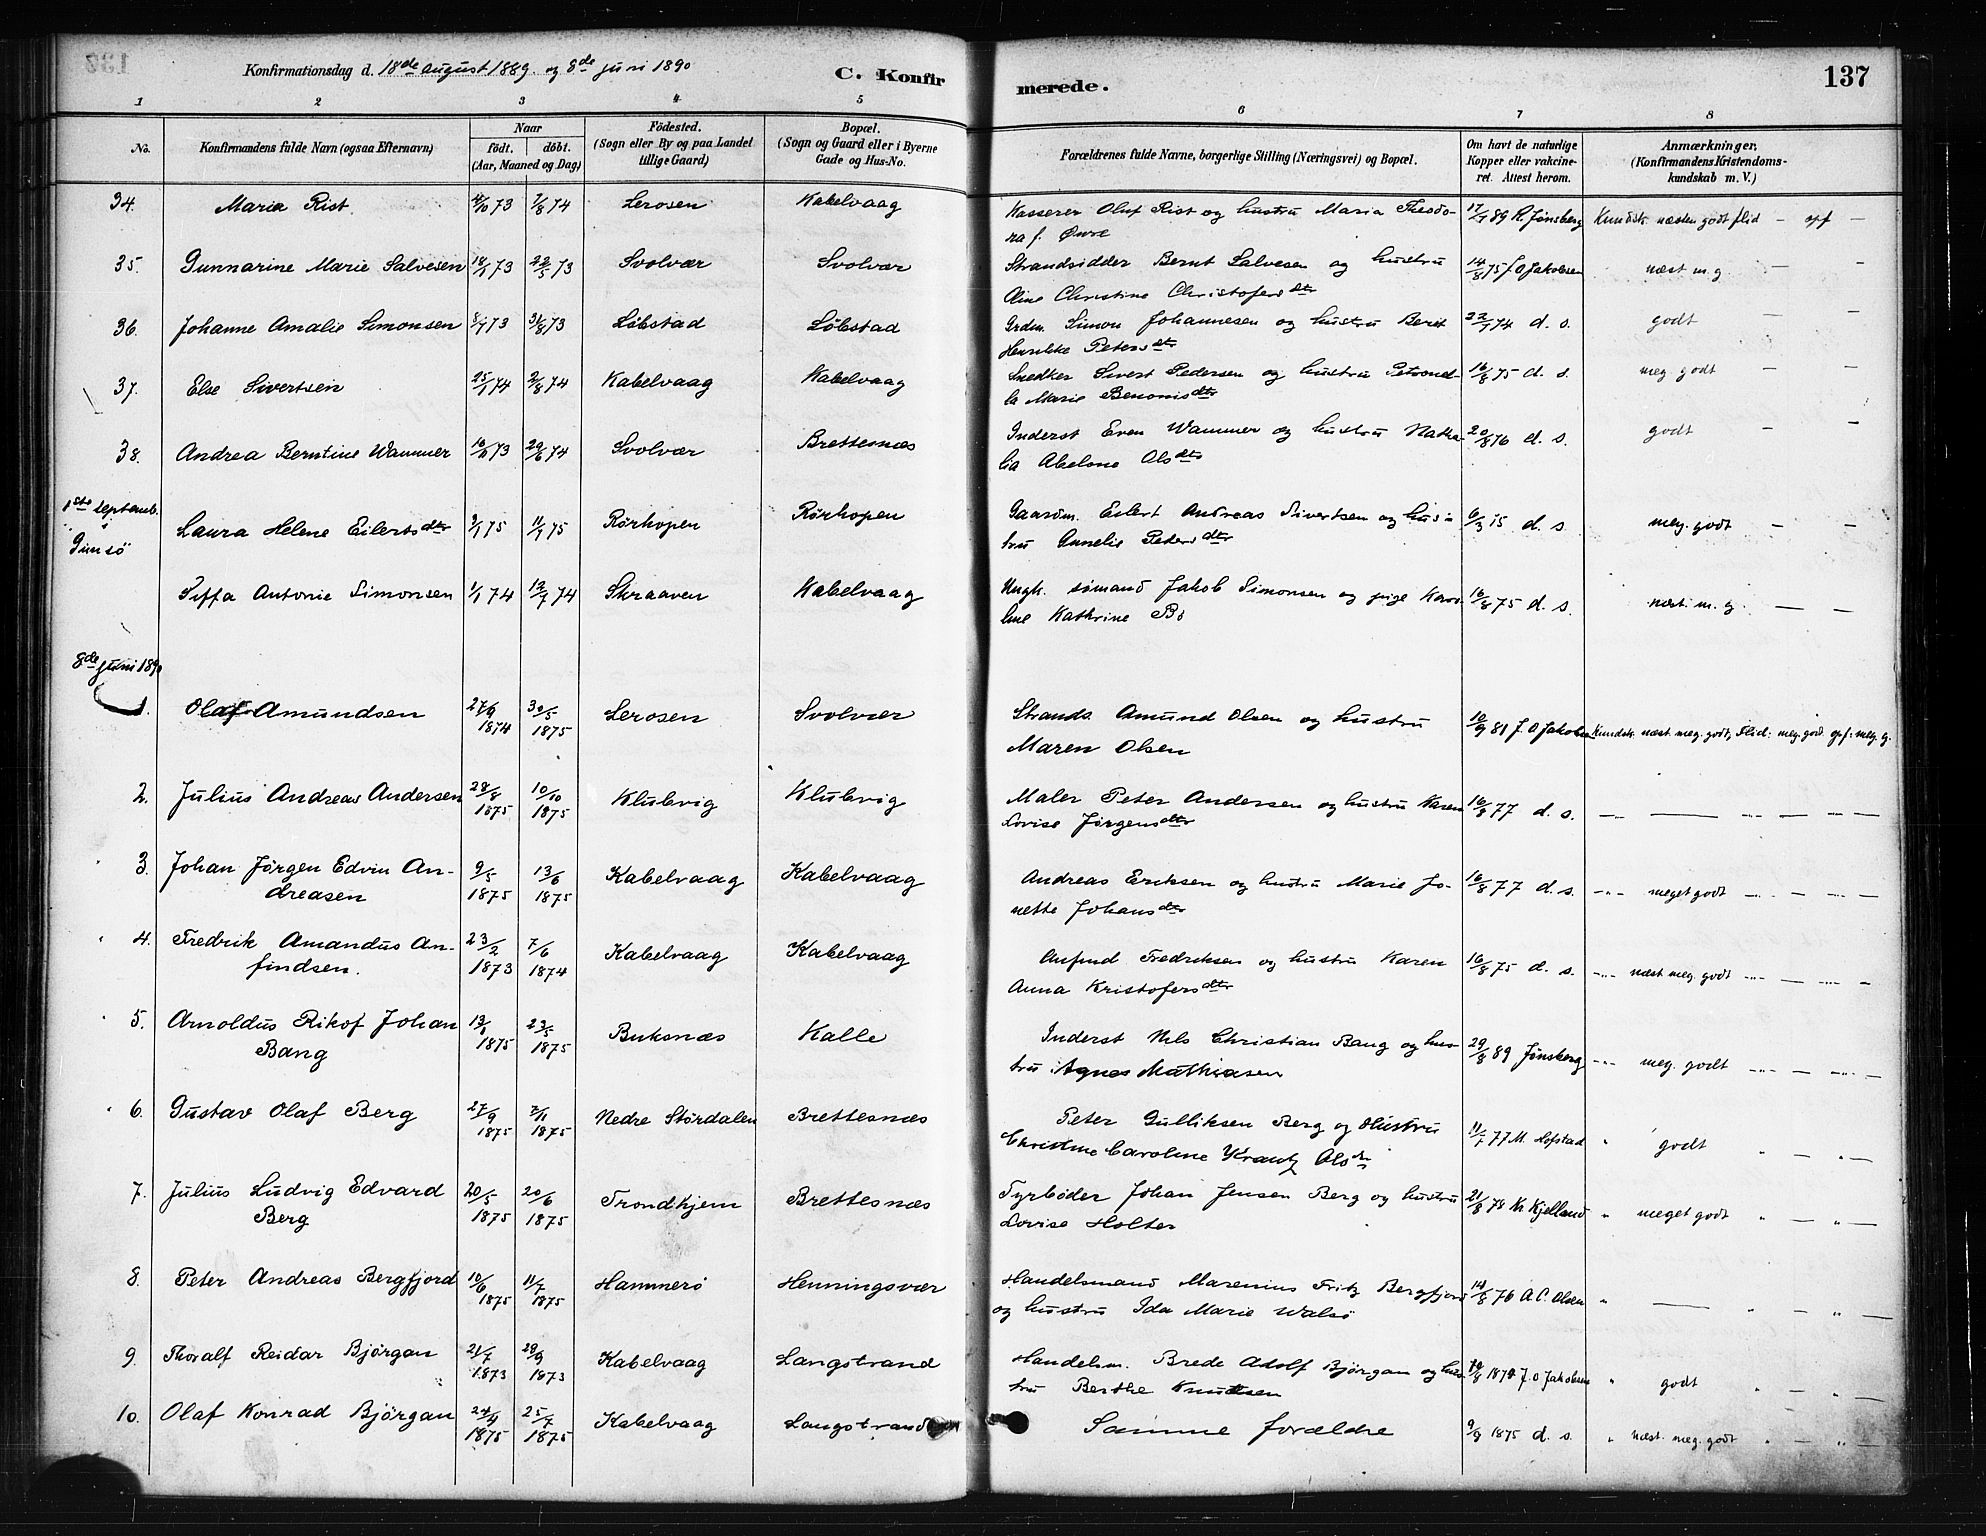 Konfirmationsdag d. 18de august 1889. og 8de juni 1890
C. Konfirmerede.
137
1 2 3 4 5 6 7 8
No.
Konfirmandens fulde Navn (ogsaa Efternavn)
Naar
födt. döbt.
(Aar, Maaned og Dag)
Födested.
(Sogn eller By og paa Landet tillige Gaard)
Bopæl.
(Sogn og Gaard eller i Byerne Gade og Hus-No.
Forældrenes fulde Navne, borgerlige Stilling (Næringsvei) og Bopæl.
Om havt de naturlige Kopper eller vakcineret. Attest herom.
Anmærkninger,
(Konfirmandens Kristendomskundskab m. V.)
34. Maria Rist 73 7/8 74 Lerosen Kabelvaag Kasserer Oluf Rist og hustru Maria Theodora f. Øwre 89 R. Jønsberg Kundsk. næsten godt flid – opf –
35. Gunnarine Marie Salvesen 18/1 73 22/5 73 Svolvær Svolvær Strandsidder Bernt Salvesen og hustru Oline Christine Christofersdtr 14/8 75 J O Jakobsen næst m. g – –
36. Johanne Amalie Simonsen 73 31/8 73 Löbstad Löbstad Grdm. Simon Johannesen og hustru Berit Henrikke Petersdtr 74 d. s. godt – –
37. Else Sivertsen 25/1 74 2/8 74 Kabelvaag Kabelvaag Snedker Sivert Pedersen og hustru Petronella Marie Benonisdtr 16/8 75 d. s. meg godt – –
38. Andrea Berntine Wammer 73 29/6 74 Svolvær Brettesnæs Inderst Even Wammer og hustru Nathalia Abelone Olsdtr 20/8 76 d. s. godt – –
1ste septemb. i Gimsö
Laura Helene Eilertsdtr 75 75 Rørhopen Rørhopen Gaardm. Eilert Andreas Sivertsen og hustru Petersdtr 6/3 d. s. meg. godt – –
Antonie Simonsen 1/1 74 12/7 74 Skraaven Kabelvaag Ungk. sömand Jakob Simonsen og pige Karoline Kathrine Bö 16/8 75 d. s. næst. m. g. – –
8de juni 1890
1. Olaf Amundsen 27/9 1874 30/5 1875 Lerosen Svolvær Strands. Amund Olsen og hustru Maren Olsen 10/9 81 J. O Jakobsen Kundsk. næst meg. godt, flid: meg. god. opf: meg. g.
2. Julius Andreas Andersen 28/8 1875 10/10 1875 Klubvig Klubvig Maler Peter Andersen og hustru Karen Lovise Jørgensdtr 16/8 77 d. s. –"– —— –"– – –"– –
3. Johan Jörgen Edvin Andreasen 9/5 1875 13/6 1875 Kabelvaag Kabelvaag Andreas Eriksen og hustru Marie Jonette Johansdtr 16/8 77 d. s. –"– meget godt –"– – –"– –
4. Fredrik Amandus Anfindsen. 23/2 1873 7/6 1874 Kabelvaag Kabelvaag Anfind Fredriksen og hustru Karen Anna Kristofersdtr 16/8 75 d. s. –"– næst meg. godt –"– – –"– –
5. Arnoldus Rikof Johan Bang 13/1 1875 23/5 1875 Buksnæs Kalle Inderst Nils Christian Bang og hustru Agnes Mathiasen 29/8 89 Jønsberg –"– meg. godt –"– – –"– –
6. Gustav Olaf Berg 27/9 1875 7/11 1875 Nedre Stördalen Brettesnæs Peter Gulliksen Berg og Hustru Christine Caroline Krantz Olsdtr 11/7 77 M. Hofstad " godt " – " –
7. Julius Ludvig Edvard Berg 20/5 1875 20/6 1875 Trondhjem Brettesnæs Fyrböder Johan Jensen Berg og hustru Lovise Holter 21/8 78 Kr Kjelland " meget godt " – " –
8. Peter Andreas Bergfjord 10/6 1875 11/7 1875 Hammerö Henningsvær Handelsmand Marenius Fritz Bergfjord og hustru Ida Marie Walsö 14/8 76 A. C. Olsen " —— " – " –
9. Thoralf Reidar Björgan 21/7 1873 28/9 1873 Kabelvaag Langstrand Handelsm. Brede Adolf Björgan og hustru Berthe Knudtsen 1874 J. O Jakobsen " godt " – " –
10. Olaf Konrad Björgan 24/4 1875 25/7 1875 Kabelvaag Langstrand Samme forældre 9/8 1875 d. s. " næst. meg. godt " – " –